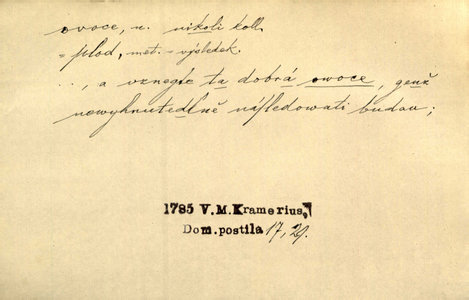 ovoce, n. nikoli koll.
= plod, met. - výsledek.
..., a vznegte ta dobrá owoce, genž
newyhnutedlně následowati budau;
1785 V.M.Kramerius,
Dom.postila 17, 29.